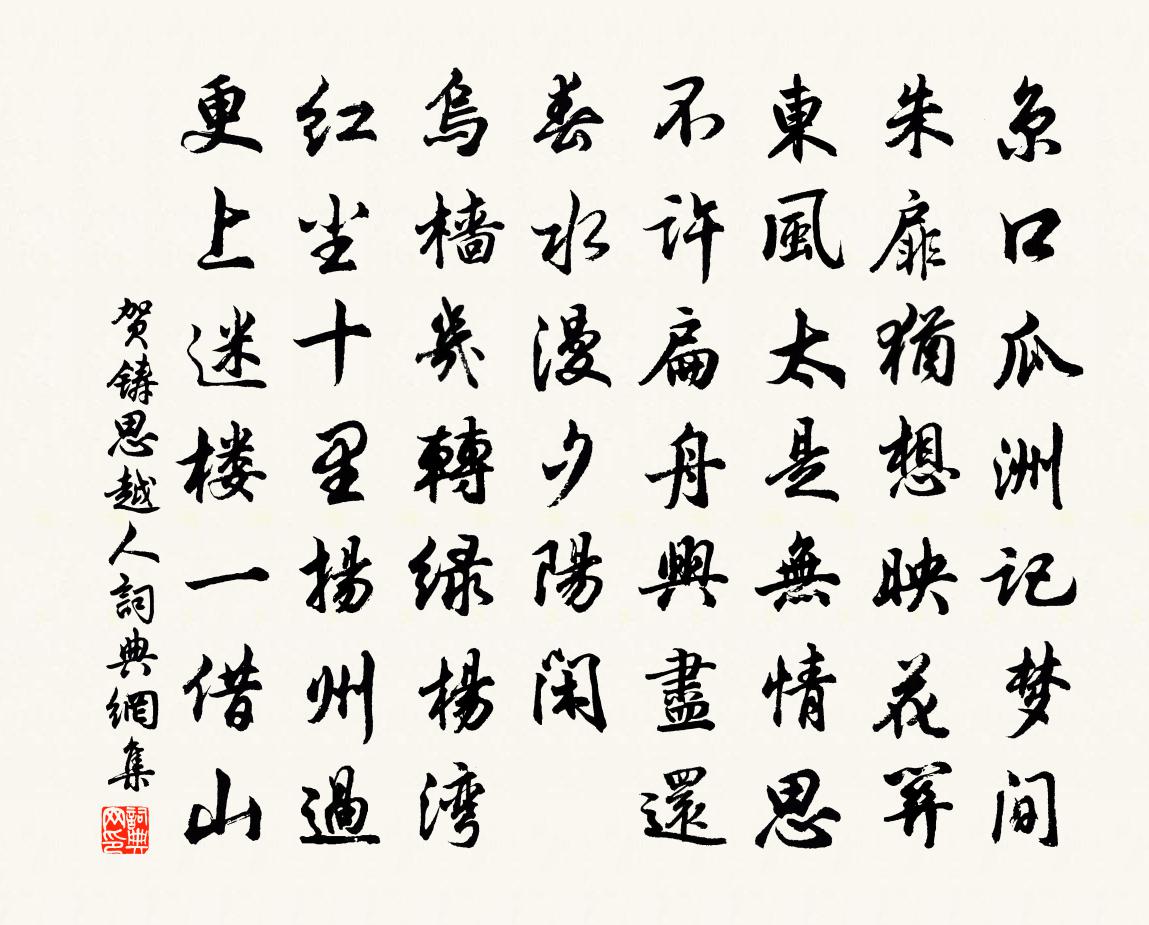 京口瓜洲记梦间
朱扉猶想映花関
東風太是無情思
不許扁舟興盡還
春水漫夕陽闲
烏檣幾轉緑楊湾
红尘十里揚州過
更上迷楼一借山
贺鑄思越人詞典網集
詞典
网印